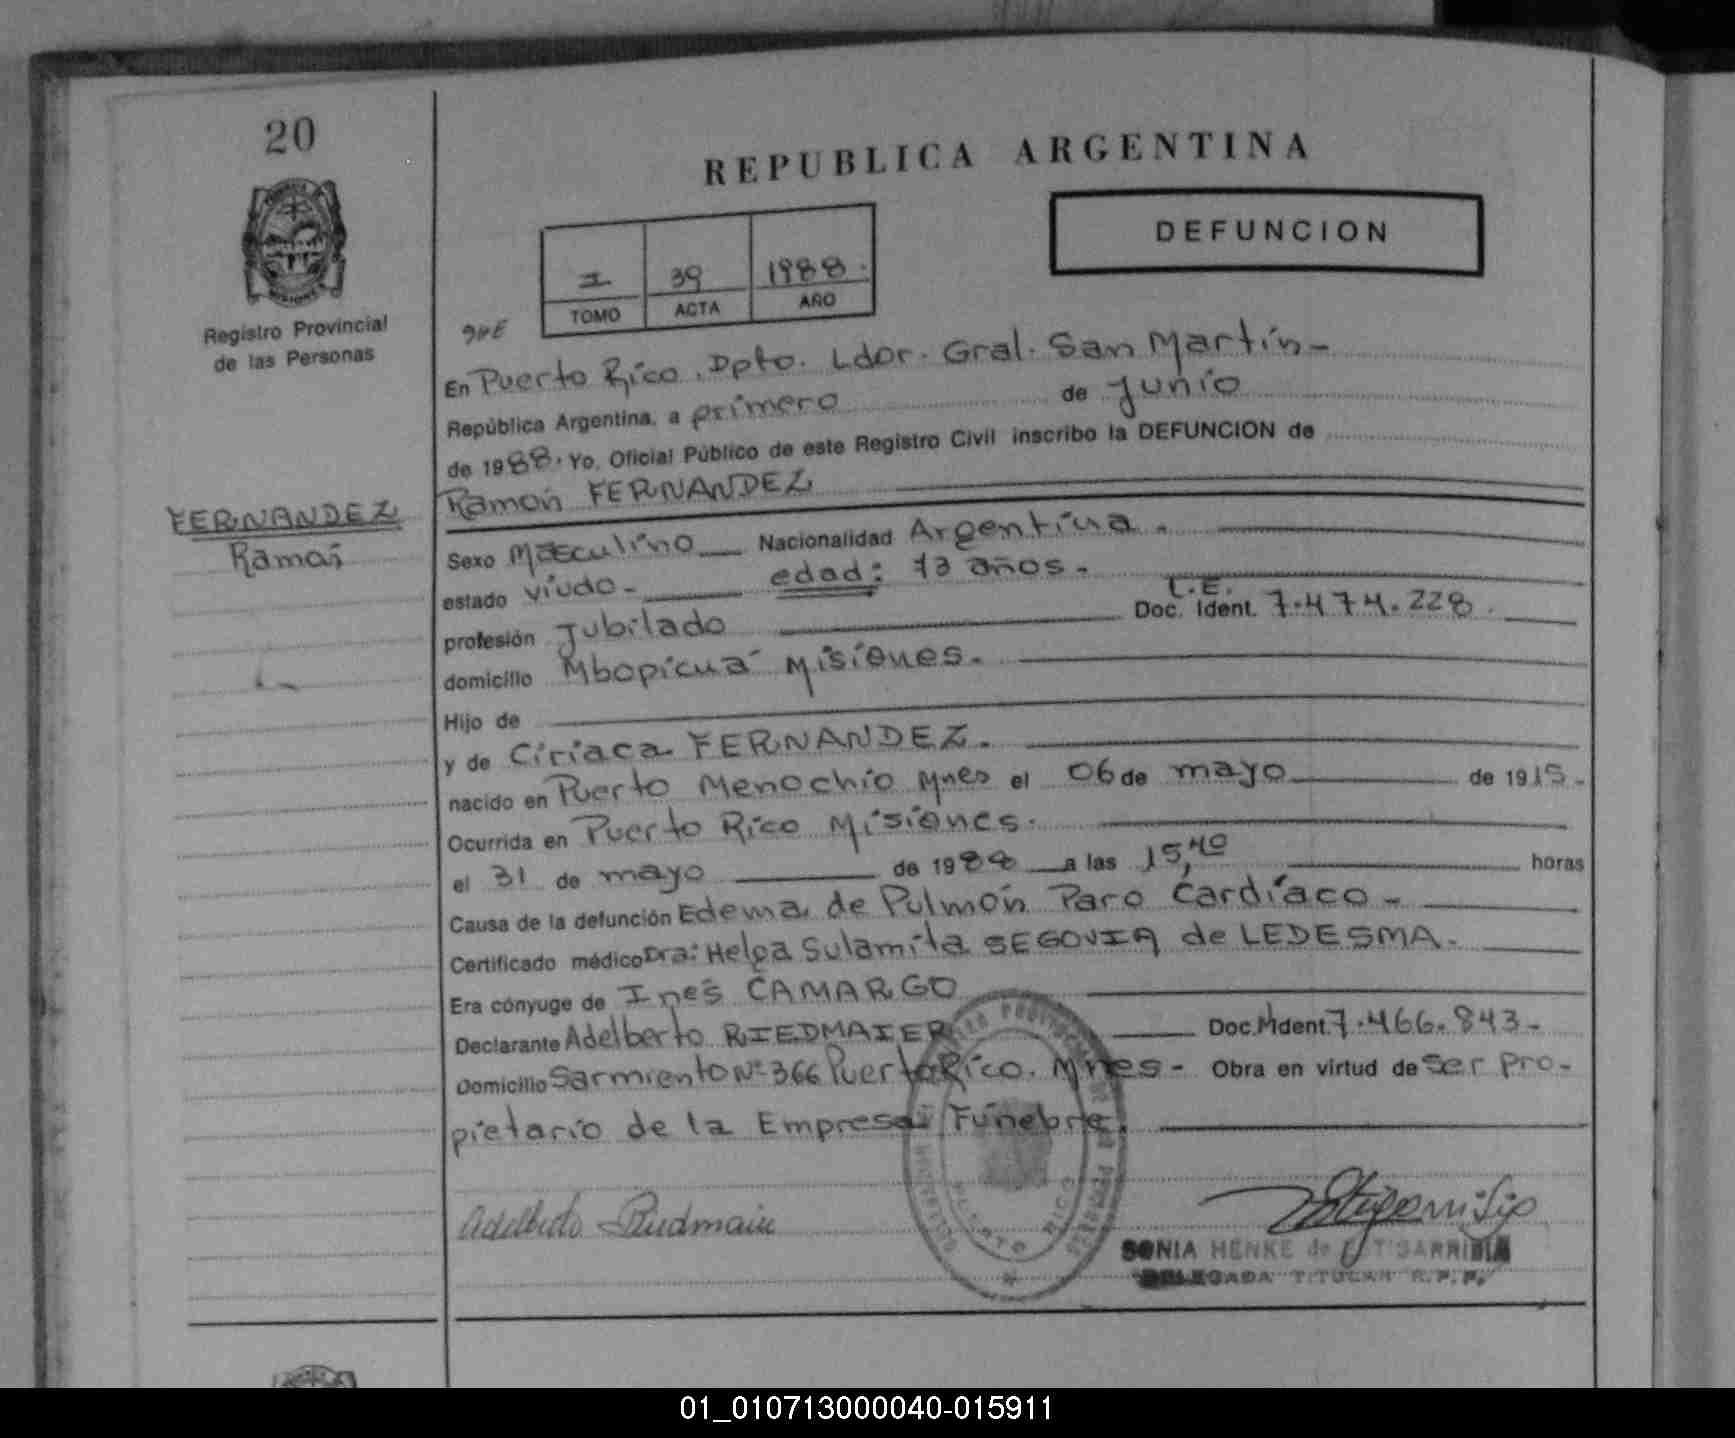 20
REPUBLICA ARGENTINA
DEFUNCION
I 39 1988.
TOMO ACTA AÑO
Registro Provincial
de las Personas
En Puerto Rico. Dpto. Ldor. Gral. San Martín-
República Argentina, a primero de Junio
de 1988. Yo, Oficial Público de este Registro Civil inscribo la DEFUNCION de
Ramón FERNANDEZ
FERNANDEZ
Ramón
Sexo Masculino Nacionalidad Argentina.
estado viudo- edad: 73 años.
L.E.
profesión Jubilado Doc. Ident. 7.474.228.
domicilio Mbopicuá Misiones.
Hijo de
y de Ciriaca FERNANDEZ.
nacido en Puerto Menochio Mnes el 06 de mayo de 1915-
Ocurrida en Puerto Rico Misiones.
el 31 de mayo de 1988 a las 15,40 horas
Causa de la defunción Edema de Pulmón Paro Cardíaco-
Certificado médico Dra: Helga Sulamita SEGOVIA de LEDESMA.
Era cónyuge de Inés CAMARGO
Declarante Adelberto RIEDMAIER Doc. Ident. 7.466.843-
Domicilio Sarmiento Nº 366 Puerto Rico. Mnes- Obra en virtud de ser pro-
pietario de la Empresa Fúnebre.
PUERTO RICO
SONIA HENKE de
DELEGADA TITULAR R.P.P.
01_010713000040-015911